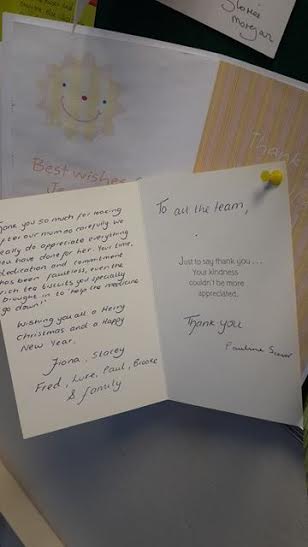 Gloria
morgan
Best wishes
Thank
Thank you so much for looking
after our mum so carefully we
really do appreciate everything
you have done for her. Your time,
dedication and commitment
has been faultless, even the
rich tea biscuits you specially
brought in to 'help the medicine
go down!'
Wishing you all a Merry
Christmas and a Happy
New Year.
Fiona, Stacey
Fred, Luke, Paul, Brooke
& family
To all the team,
Just to say thank you...
Your kindness
couldn't be more
appreciated.
Thank you
Pauline